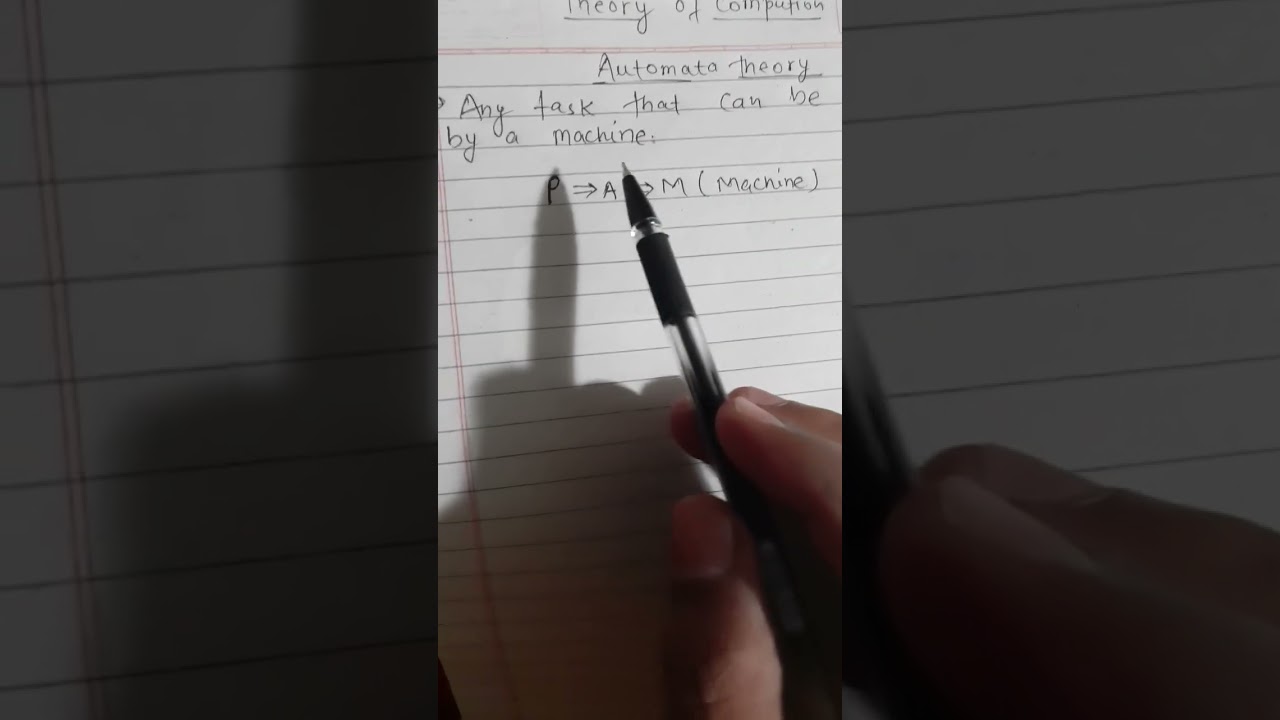 Theory of Compution
Automata theory
Any task that can be
by a machine.
P ⇒ A ⇒ M ( Machine )